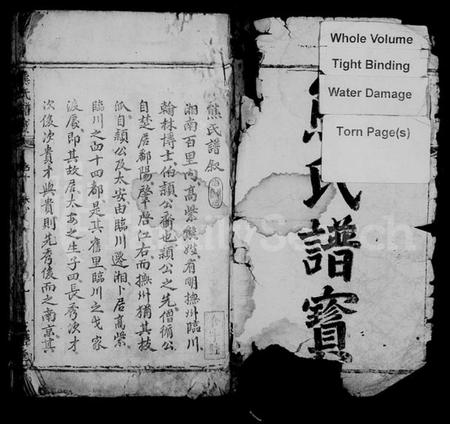 Whole Volume
Tight Binding
Water Damage
Torn Page(s)
氏譜寳
熊氏譜敘
湘南百里向高紫熊姓有明撫州臨川
翰林博士伯顏公裔也顏公之先僧循公
自楚居鄱陽肇啓江右而撫州猶其枝
派自顏公及太安由臨川遷湘卜居高紫
臨川之四十四都是其舊里臨川之戈家
渡處即其故居太安之生子四長秀次才
次俊次貴才與貴則先秀俊而之南京其